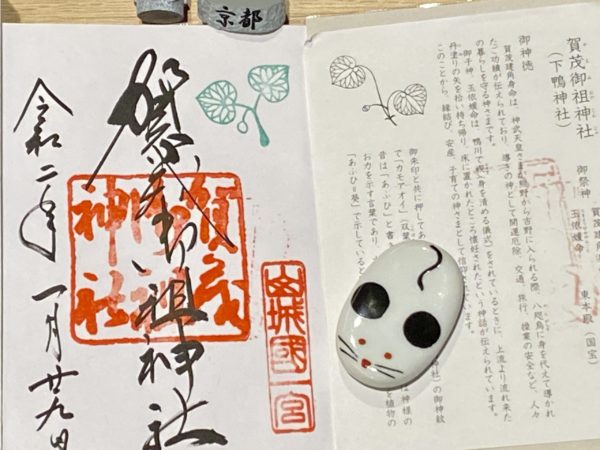 京都
賀茂御祖神社
(下鴨神社)
御祭神
玉依媛命
東本殿（国宝）
御神徳
賀茂建角身命は、神武天皇さまが熊野から吉野に入られる際、八咫烏に身を代えて導かれ
たご功績が伝えられており、導きの神として開運厄除、交通、旅行、操業の安全など、人々
の暮らしを守る神さまです。
御子神、玉依媛命は、鴨川で禊（身を清める儀式）をされているときに、上流より流れ来た
丹塗りの矢を拾い持ち帰り、床に置かれたところ懐妊されたという神話が伝えられています。
このことから、縁結び、安産、子育ての神さまとして信仰
御朱印と共に押してあ
て「カモアオイ」「双葉
音は「あふひ」と書き
お力を示す言葉であり、
「あふひ＝葵」で示していると
山城國一宮
賀茂御祖神社
賀茂御祖神社
令和二年一月廿九日